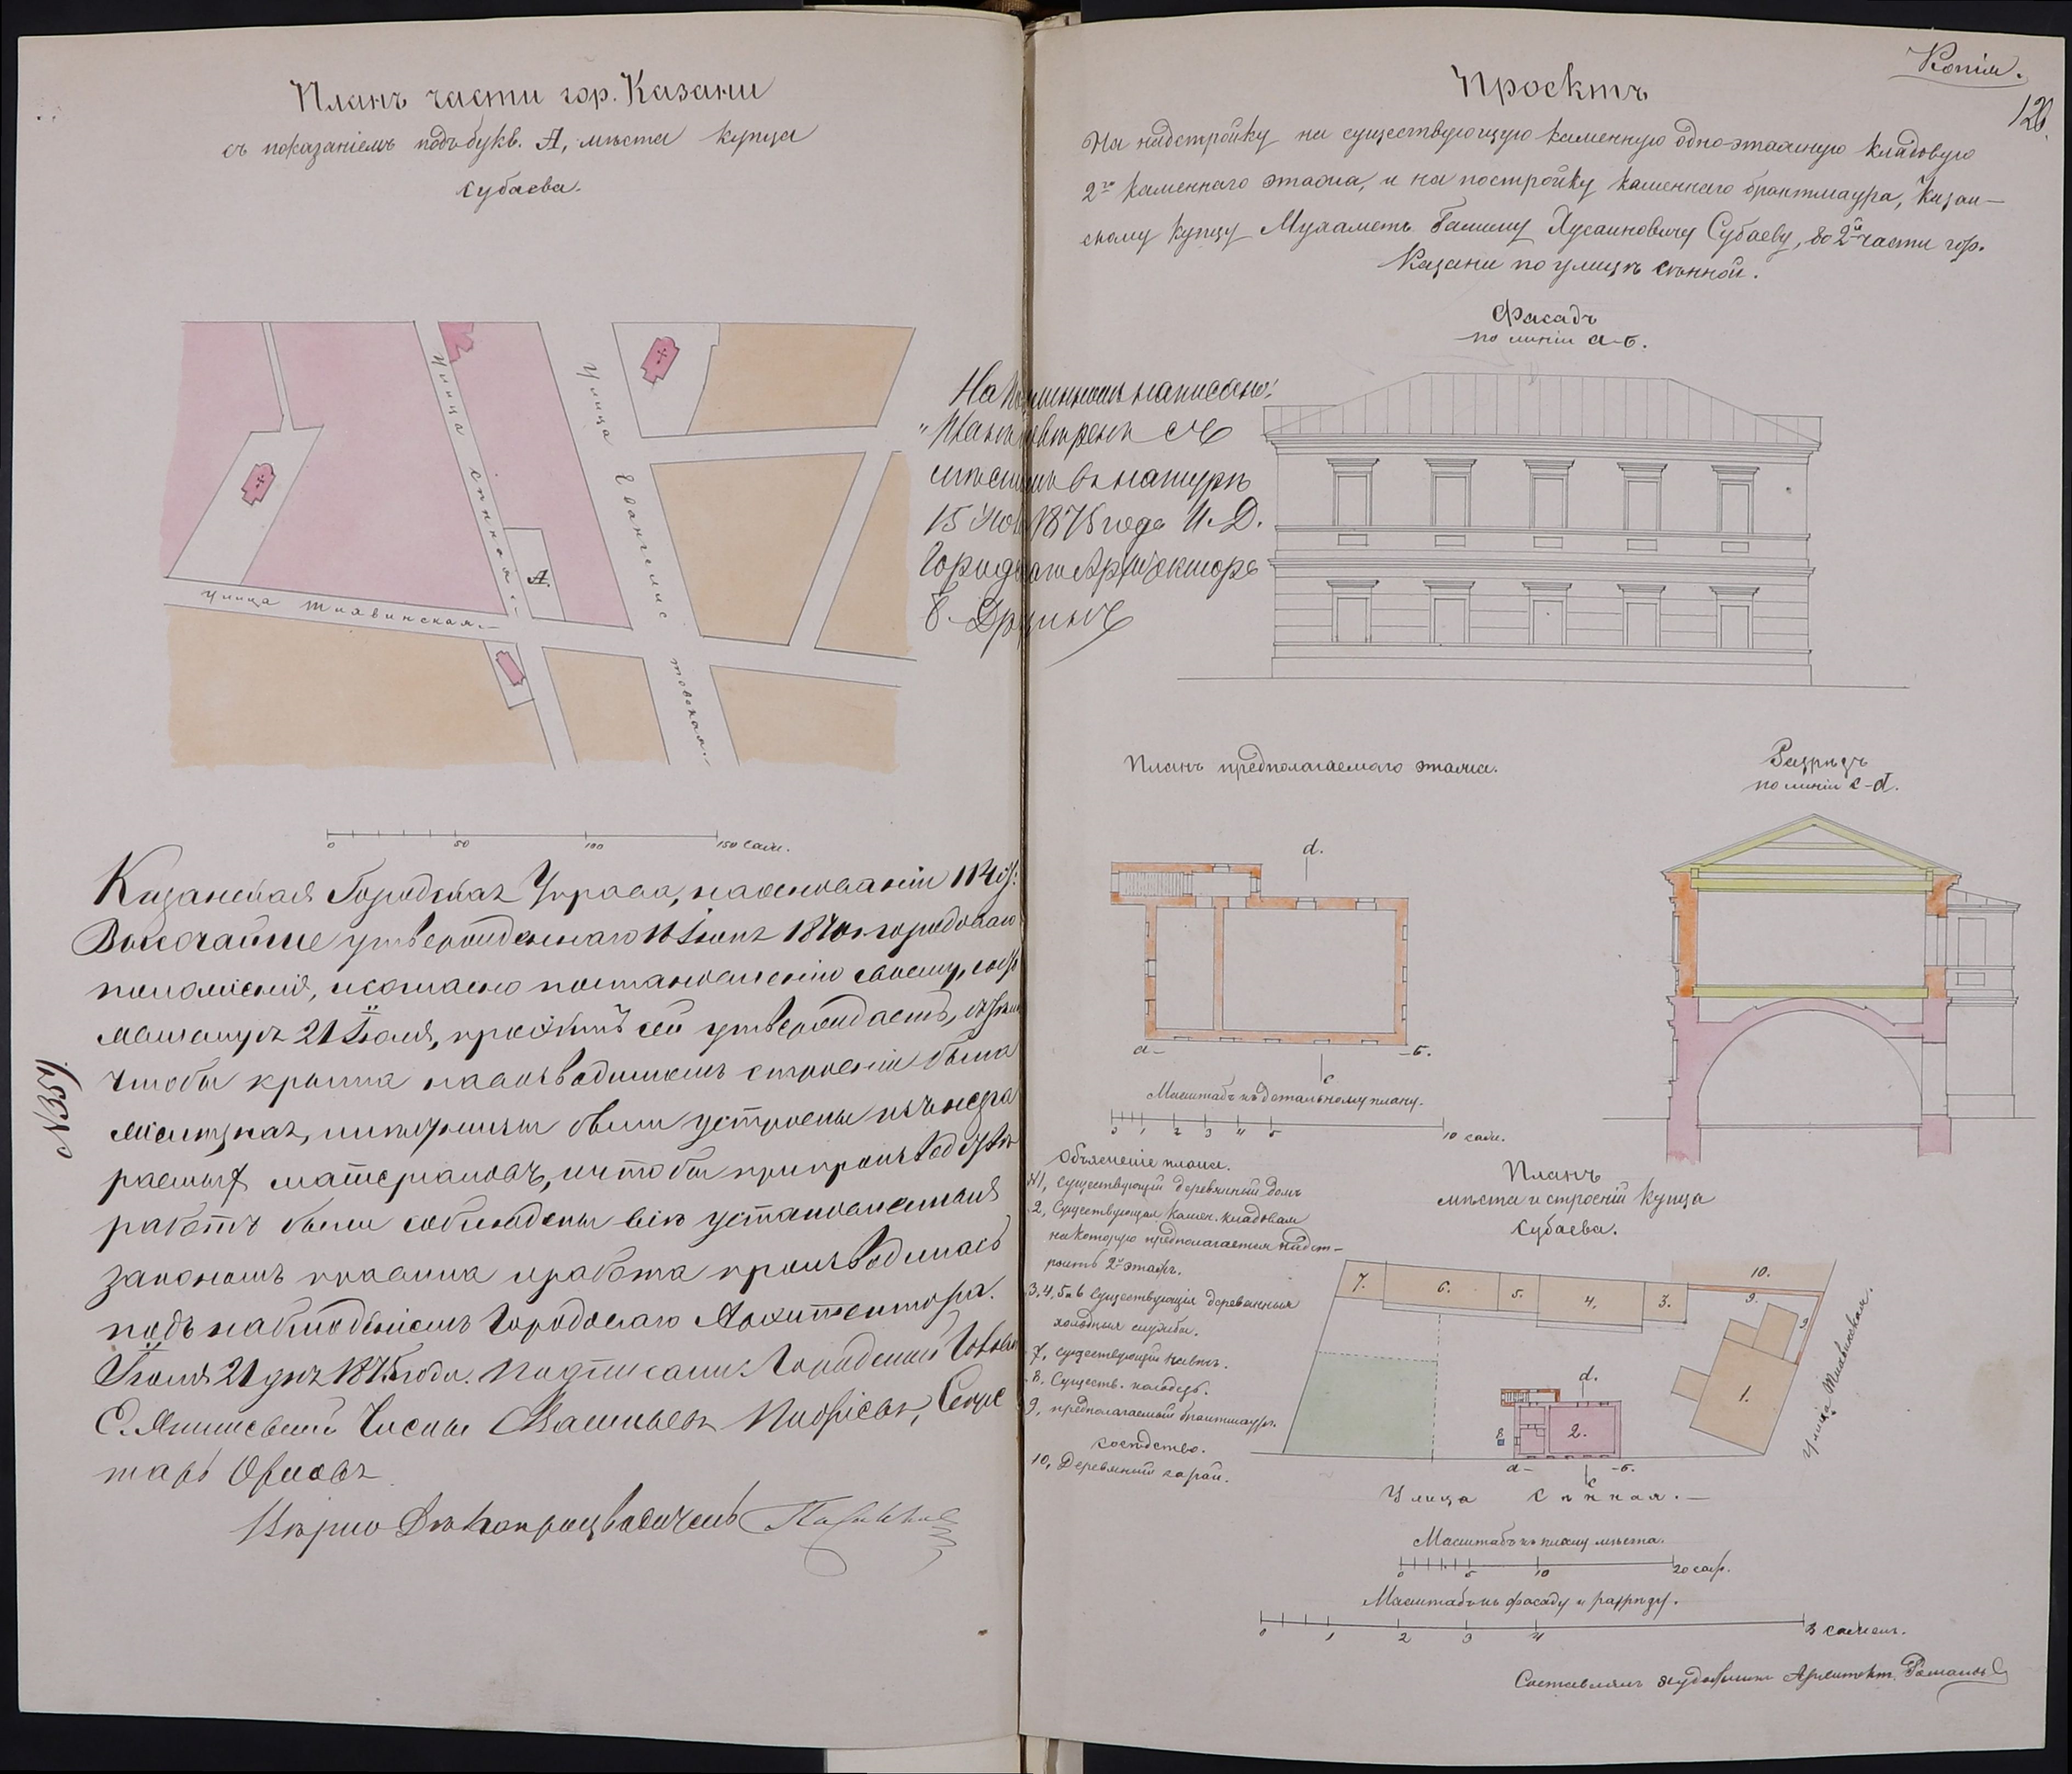 Планъ части гор. Казани
съ показаніемъ подъ букв. А, мѣста купца
Субаева.
Улица Сѣнная.
Улица Евангелистовская.
А.
Улица Тихвинская.
0 50 100 150 саж.
Казанская Городская Управа, на основаніи 114 ст.
Высочайше утвержденнаго 16 Іюня 1870 г. городоваго
положенія, и согласно постановленію своему,
21 Іюля, проэктъ сей утверждаетъ, съ тѣмъ
чтобы крыша на возводимомъ строеніи была
изъ несго
раемыхъ матеріаловъ, и чтобы при производствѣ
работъ были соблюдены всѣ установленныя
закономъ правила и работа производилась
подъ наблюденіемъ Городоваго Архитектора.
Іюля 21 дня 1875 года. Подписали: Городской Голова
Е. Янишевскій Члены Васильевъ, Секре
тарь Орловъ
Вѣрно Дѣлопроизводитель
№ 359.
Копія.
120.
Проектъ
На надстройку на существующую каменную одно-этажную кладовую
2го каменнаго этажа, и на постройку каменнаго брантмаура, Казан-
скому купцу Мухаметъ Галему Хусаиновичу Субаеву, во 2й части гор.
Казани по улицѣ Сѣнной.
Фасадъ
по линіи а-б.
На подлинномъ написано:
"Планъ вѣренъ съ
мѣстомъ въ натурѣ
15 1875 года И. Д.
Городскаго Архитектора
Планъ предполагаемаго этажа.
d.
а- -б.
c
Масштабъ къ детальному плану.
0 1 2 3 4 5 10 саж.
Разрѣзъ
по линіи c-d.
Объясненіе плана.
№1, Существующій деревянный домъ
2, Существующая камен. кладовая
на которую предполагается надст-
роить 2й этажъ.
3, 4, 5 и 6 Существующія деревянныя
холодныя службы.
7, Существующій навѣсъ.
8, Существ. колодезь.
9, предполагаемый брантмауръ.
сосѣдство.
10, Деревянный сарай.
Планъ
мѣста и строеній купца
Субаева.
7. 6. 5. 4. 3. 10.
9. 9
1.
d.
8 2.
а- -б.
c
Улица Тихвинская.
Улица Сѣнная.
Масштабъ къ плану мѣста.
0 5 10 20 саж.
Масштабъ къ фасаду и разрѣзу.
0 1 2 3 4 8 сажен.
Составлялъ художникъ Архитект. Романовъ